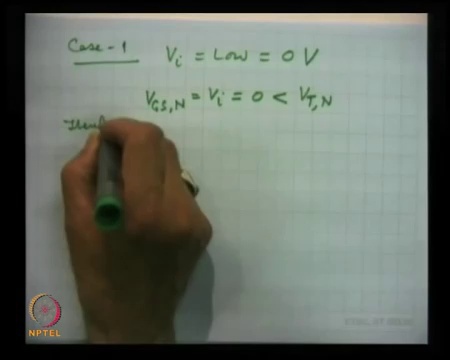 Case-1 Vi = Low = 0 V
VGS,N = Vi = 0 < VT,N
NPTEL